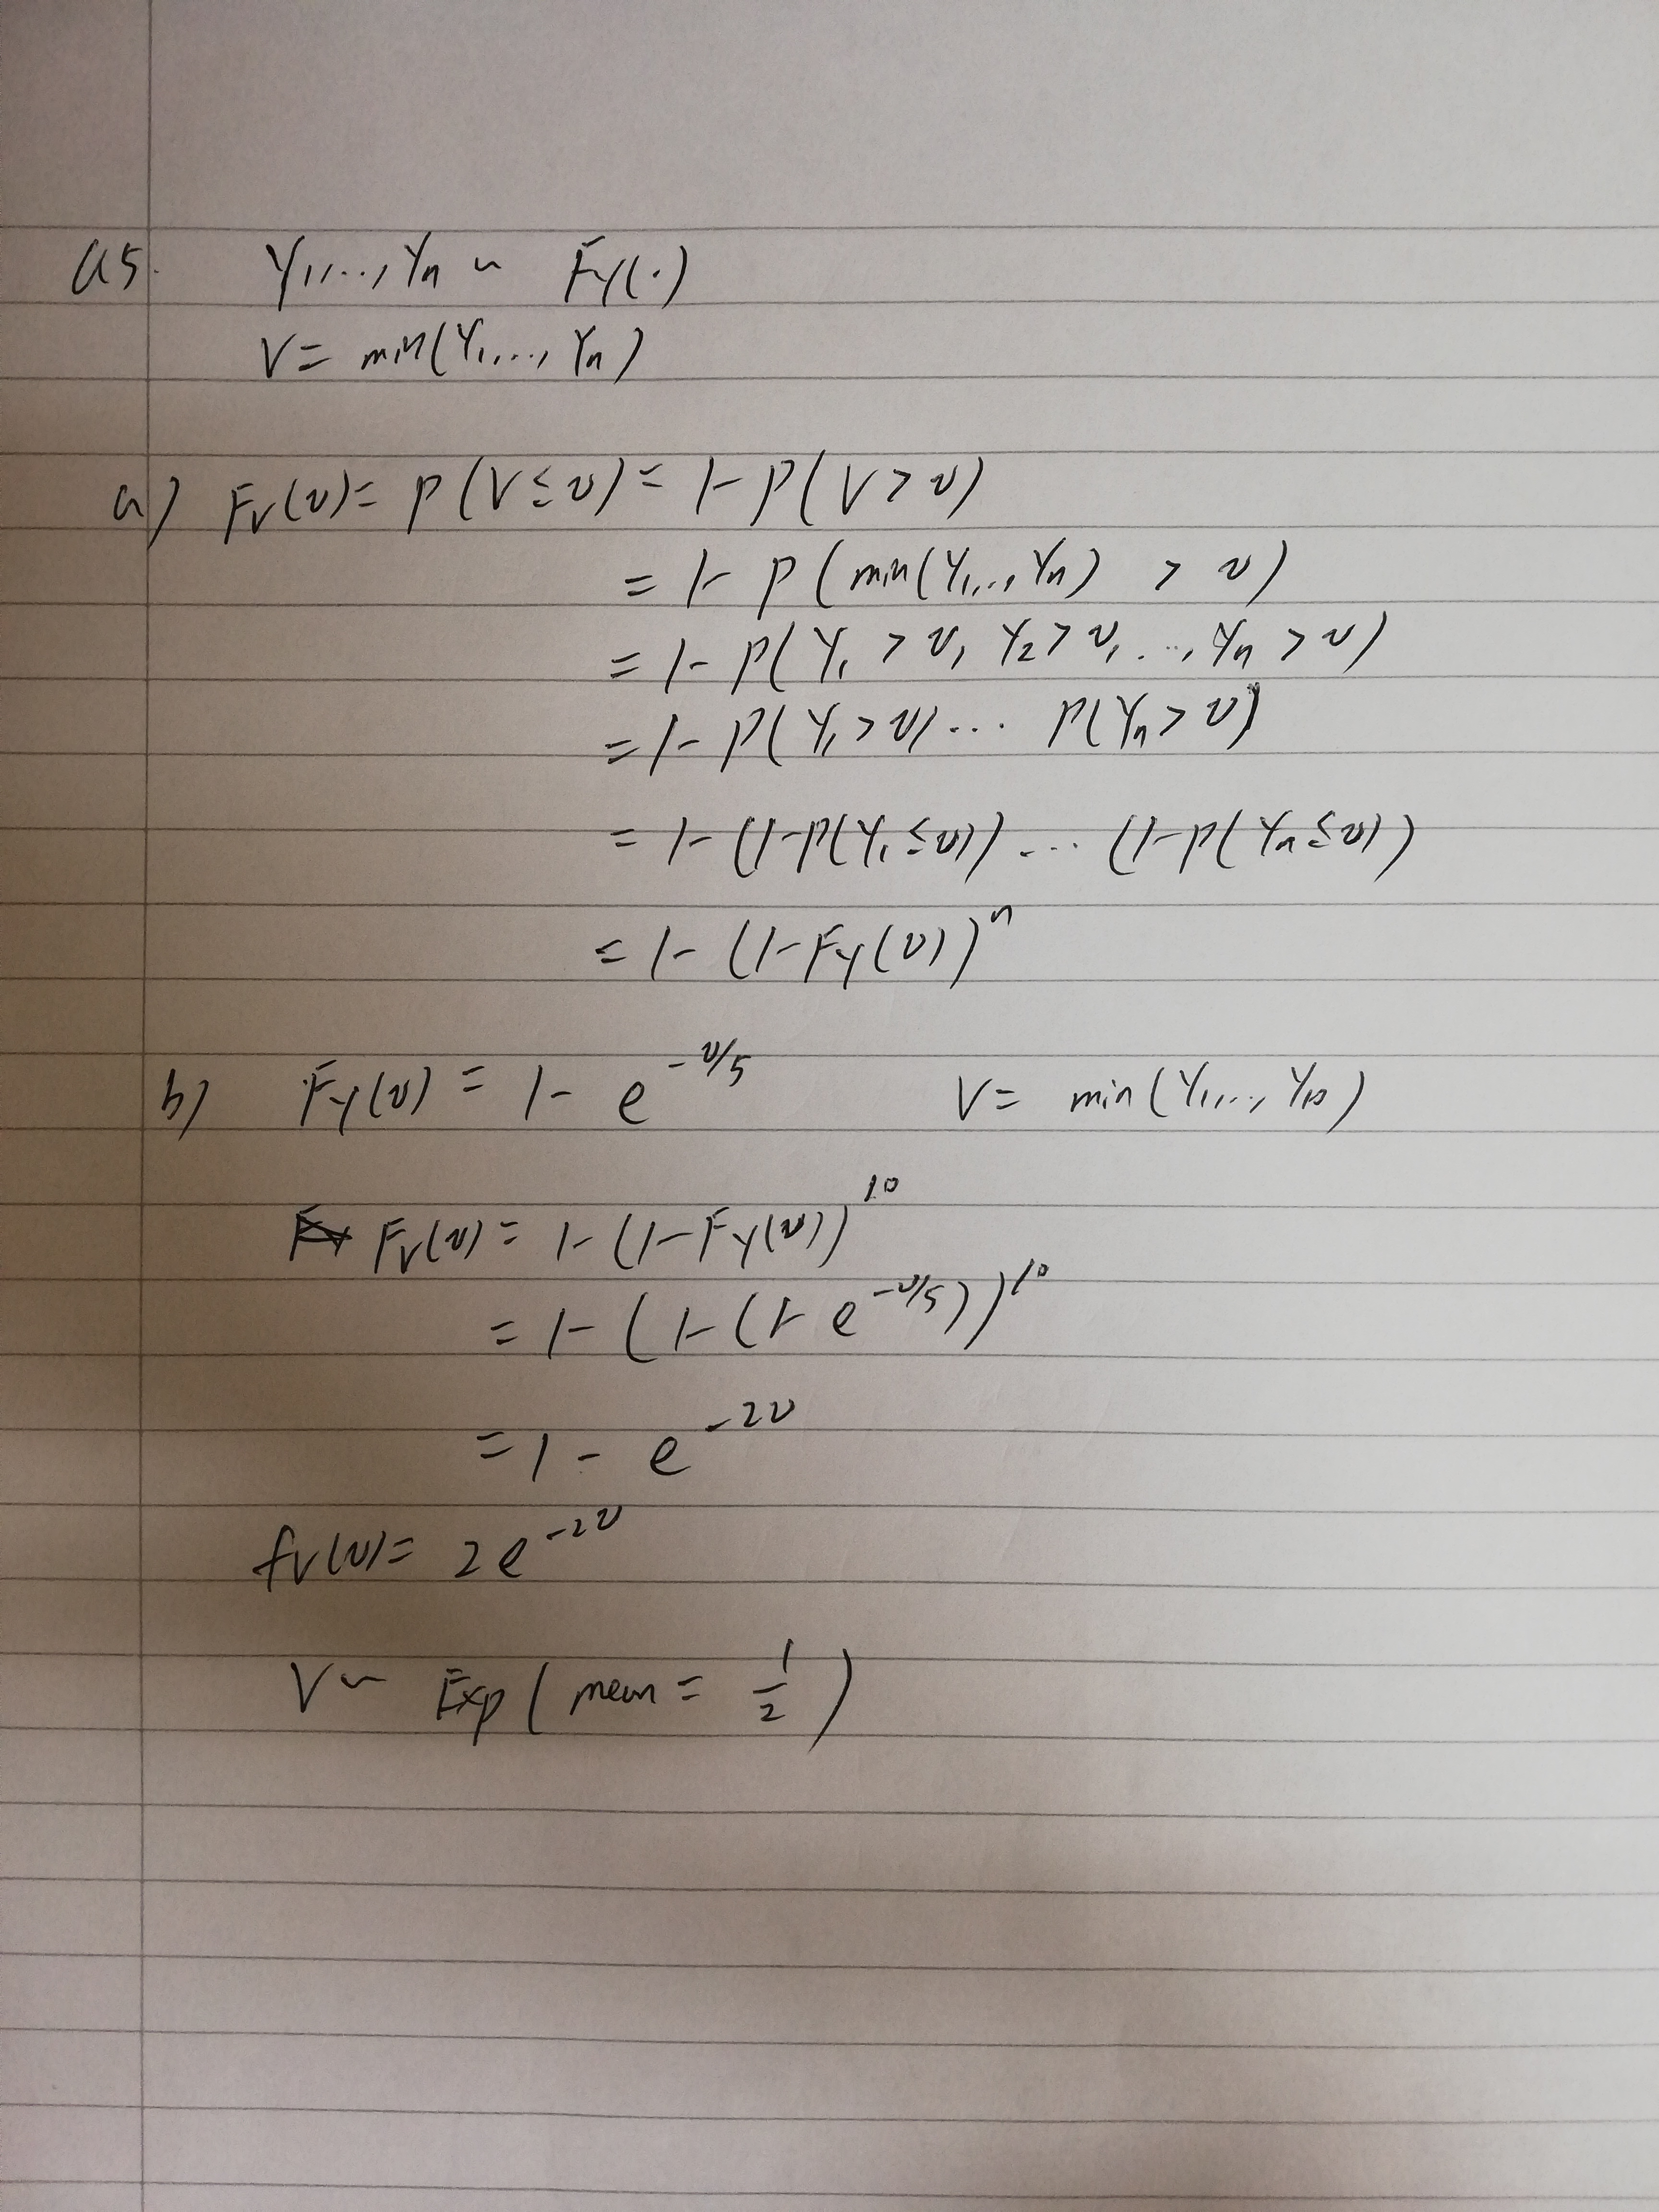 Q5. Y₁,..., Yₙ ~ F_Y(·)
V = min(Y₁,..., Yₙ)
a) F_V(v) = P(V ≤ v) = 1 - P(V > v)
= 1 - P(min(Y₁,..., Yₙ) > v)
= 1 - P(Y₁ > v, Y₂ > v, ..., Yₙ > v)
= 1 - P(Y₁ > v) ... P(Yₙ > v)
= 1 - (1 - P(Y₁ ≤ v)) ... (1 - P(Yₙ ≤ v))
= 1 - (1 - F_Y(v))ⁿ
b) F_Y(v) = 1 - e^(-v/5) V = min(Y₁,..., Y₁₀)
F_V(v) = 1 - (1 - F_Y(v))^10
= 1 - (1 - (1 - e^(-v/5)))^10
= 1 - e^(-2v)
f_V(v) = 2e^(-2v)
V ~ Exp(mean = 1/2)